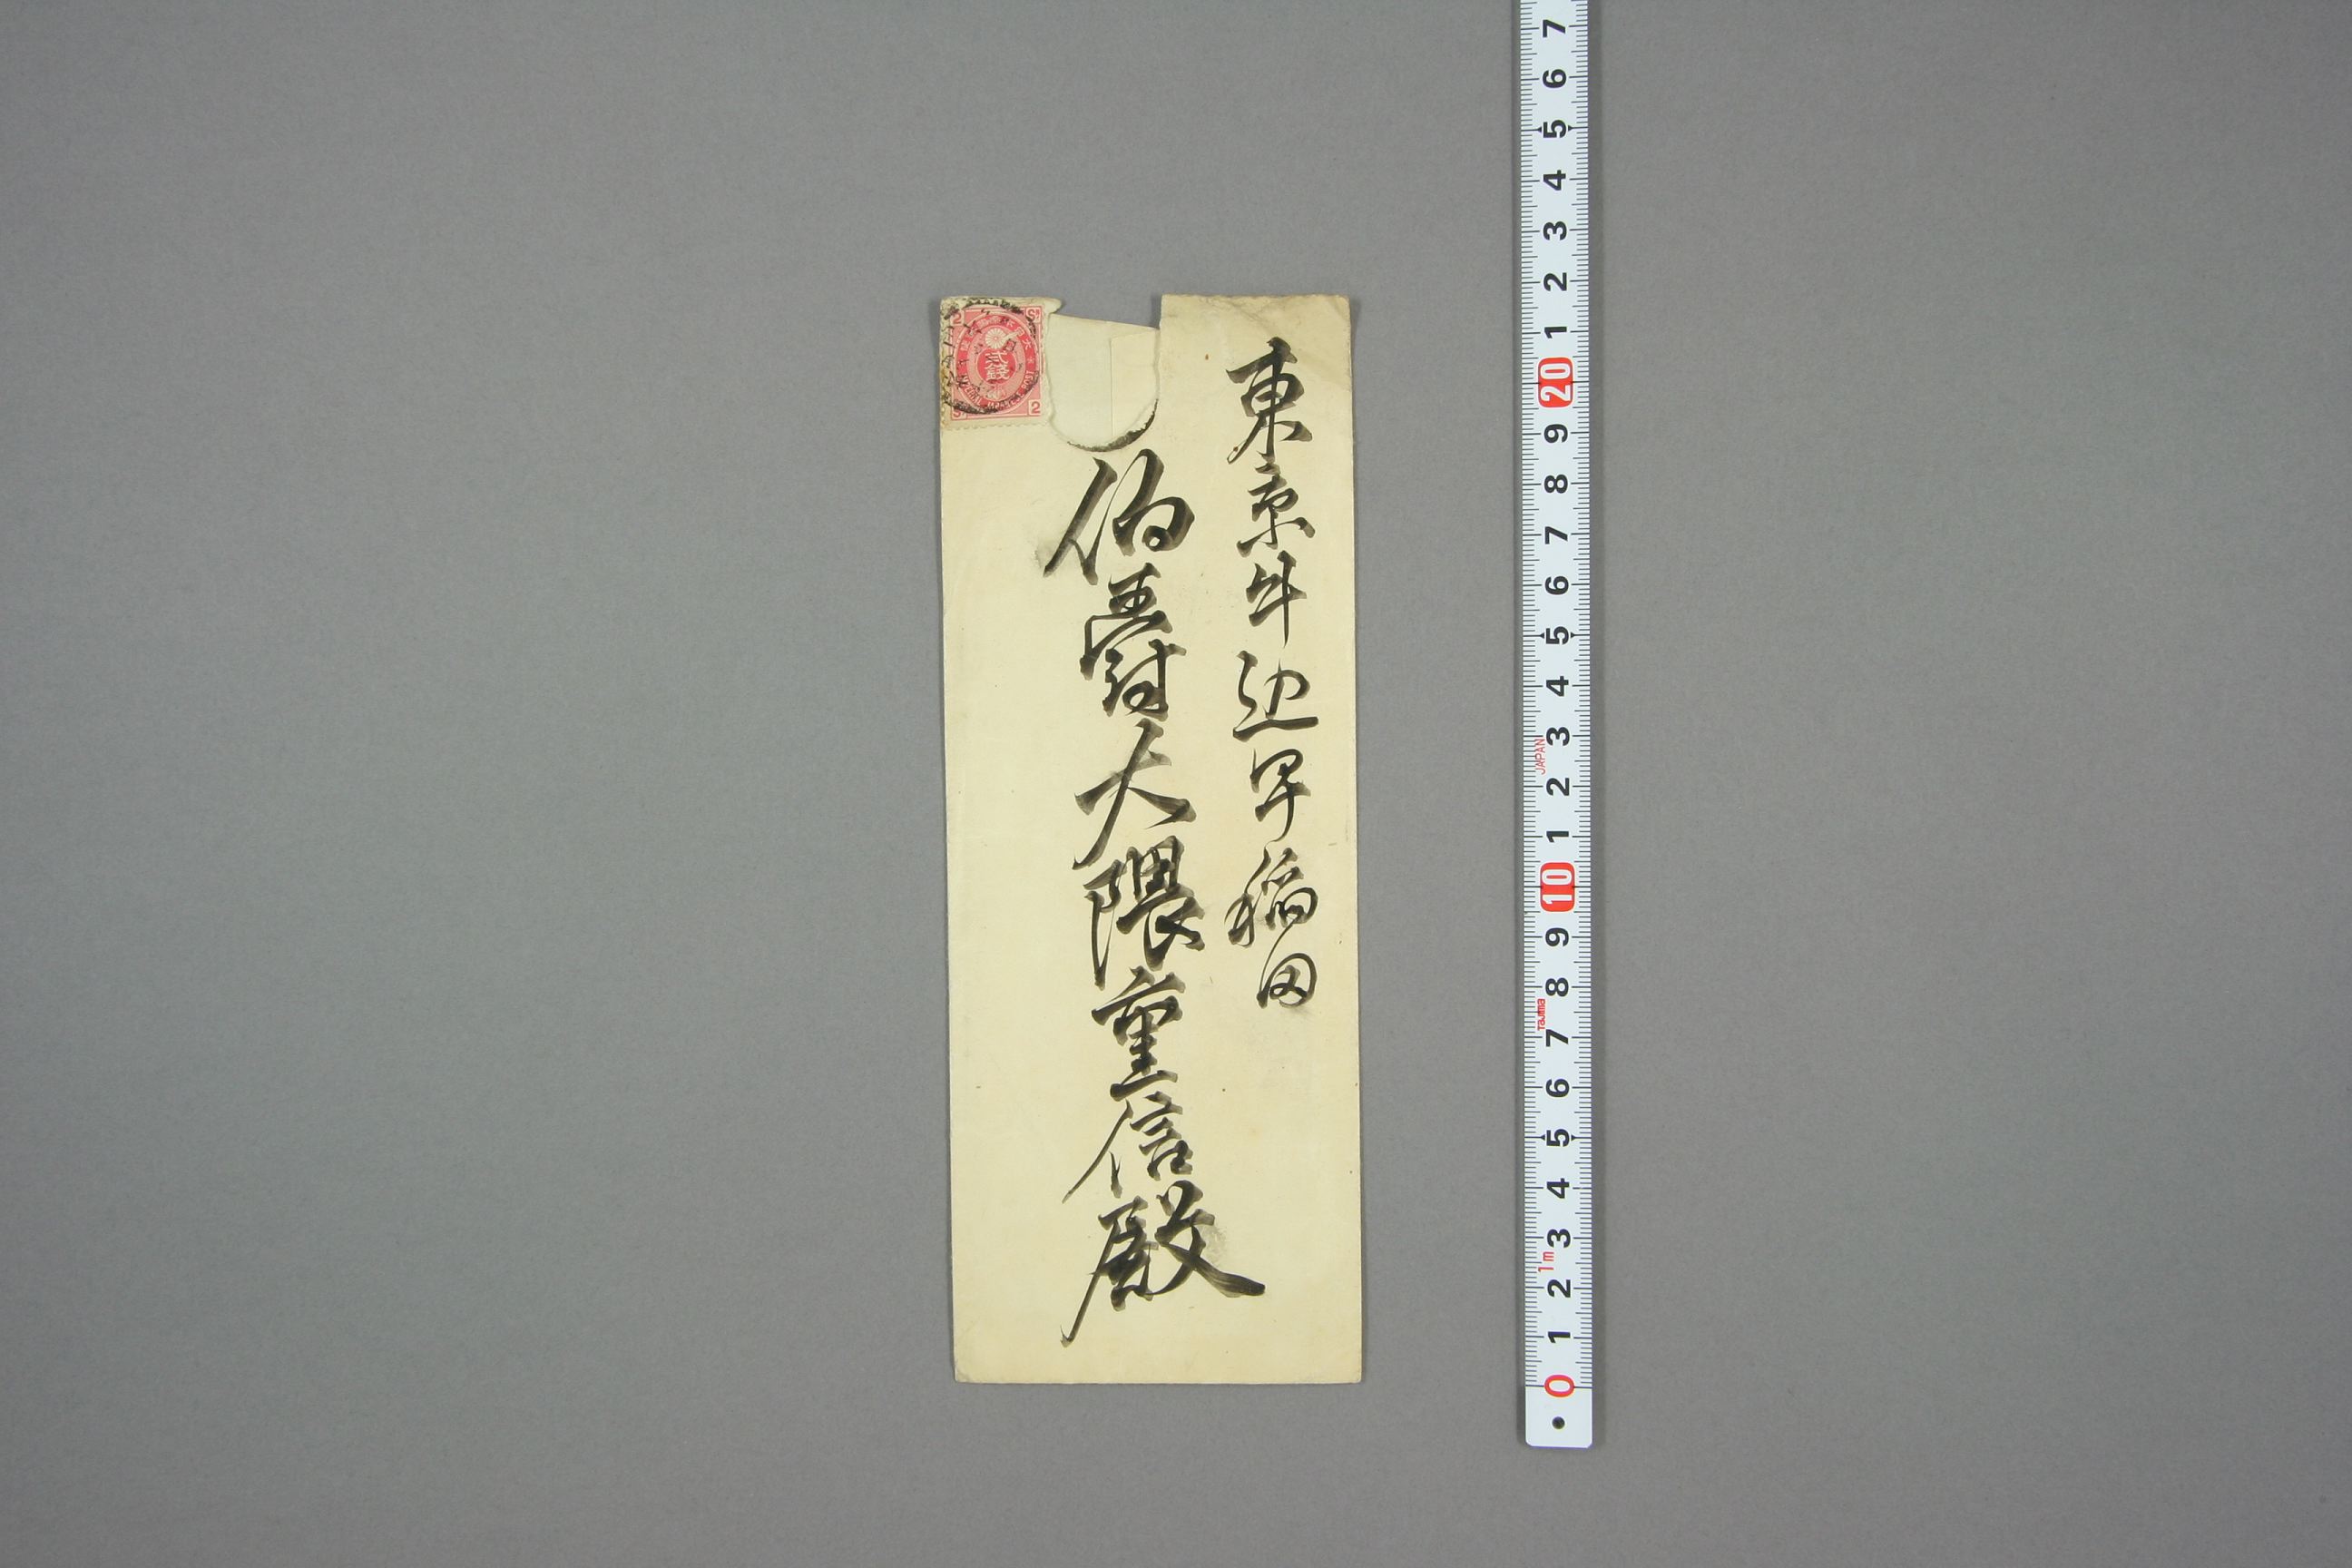 東京牛込早稲田
伯爵大隈重信殿
2 Sn
貳錢
Sn 2
7
6
5
4
3
2
1
20
9
8
7
6
5
4
3
2
1
10
9
8
7
6
5
4
3
2
1
0
JAPAN
Tajima
1m